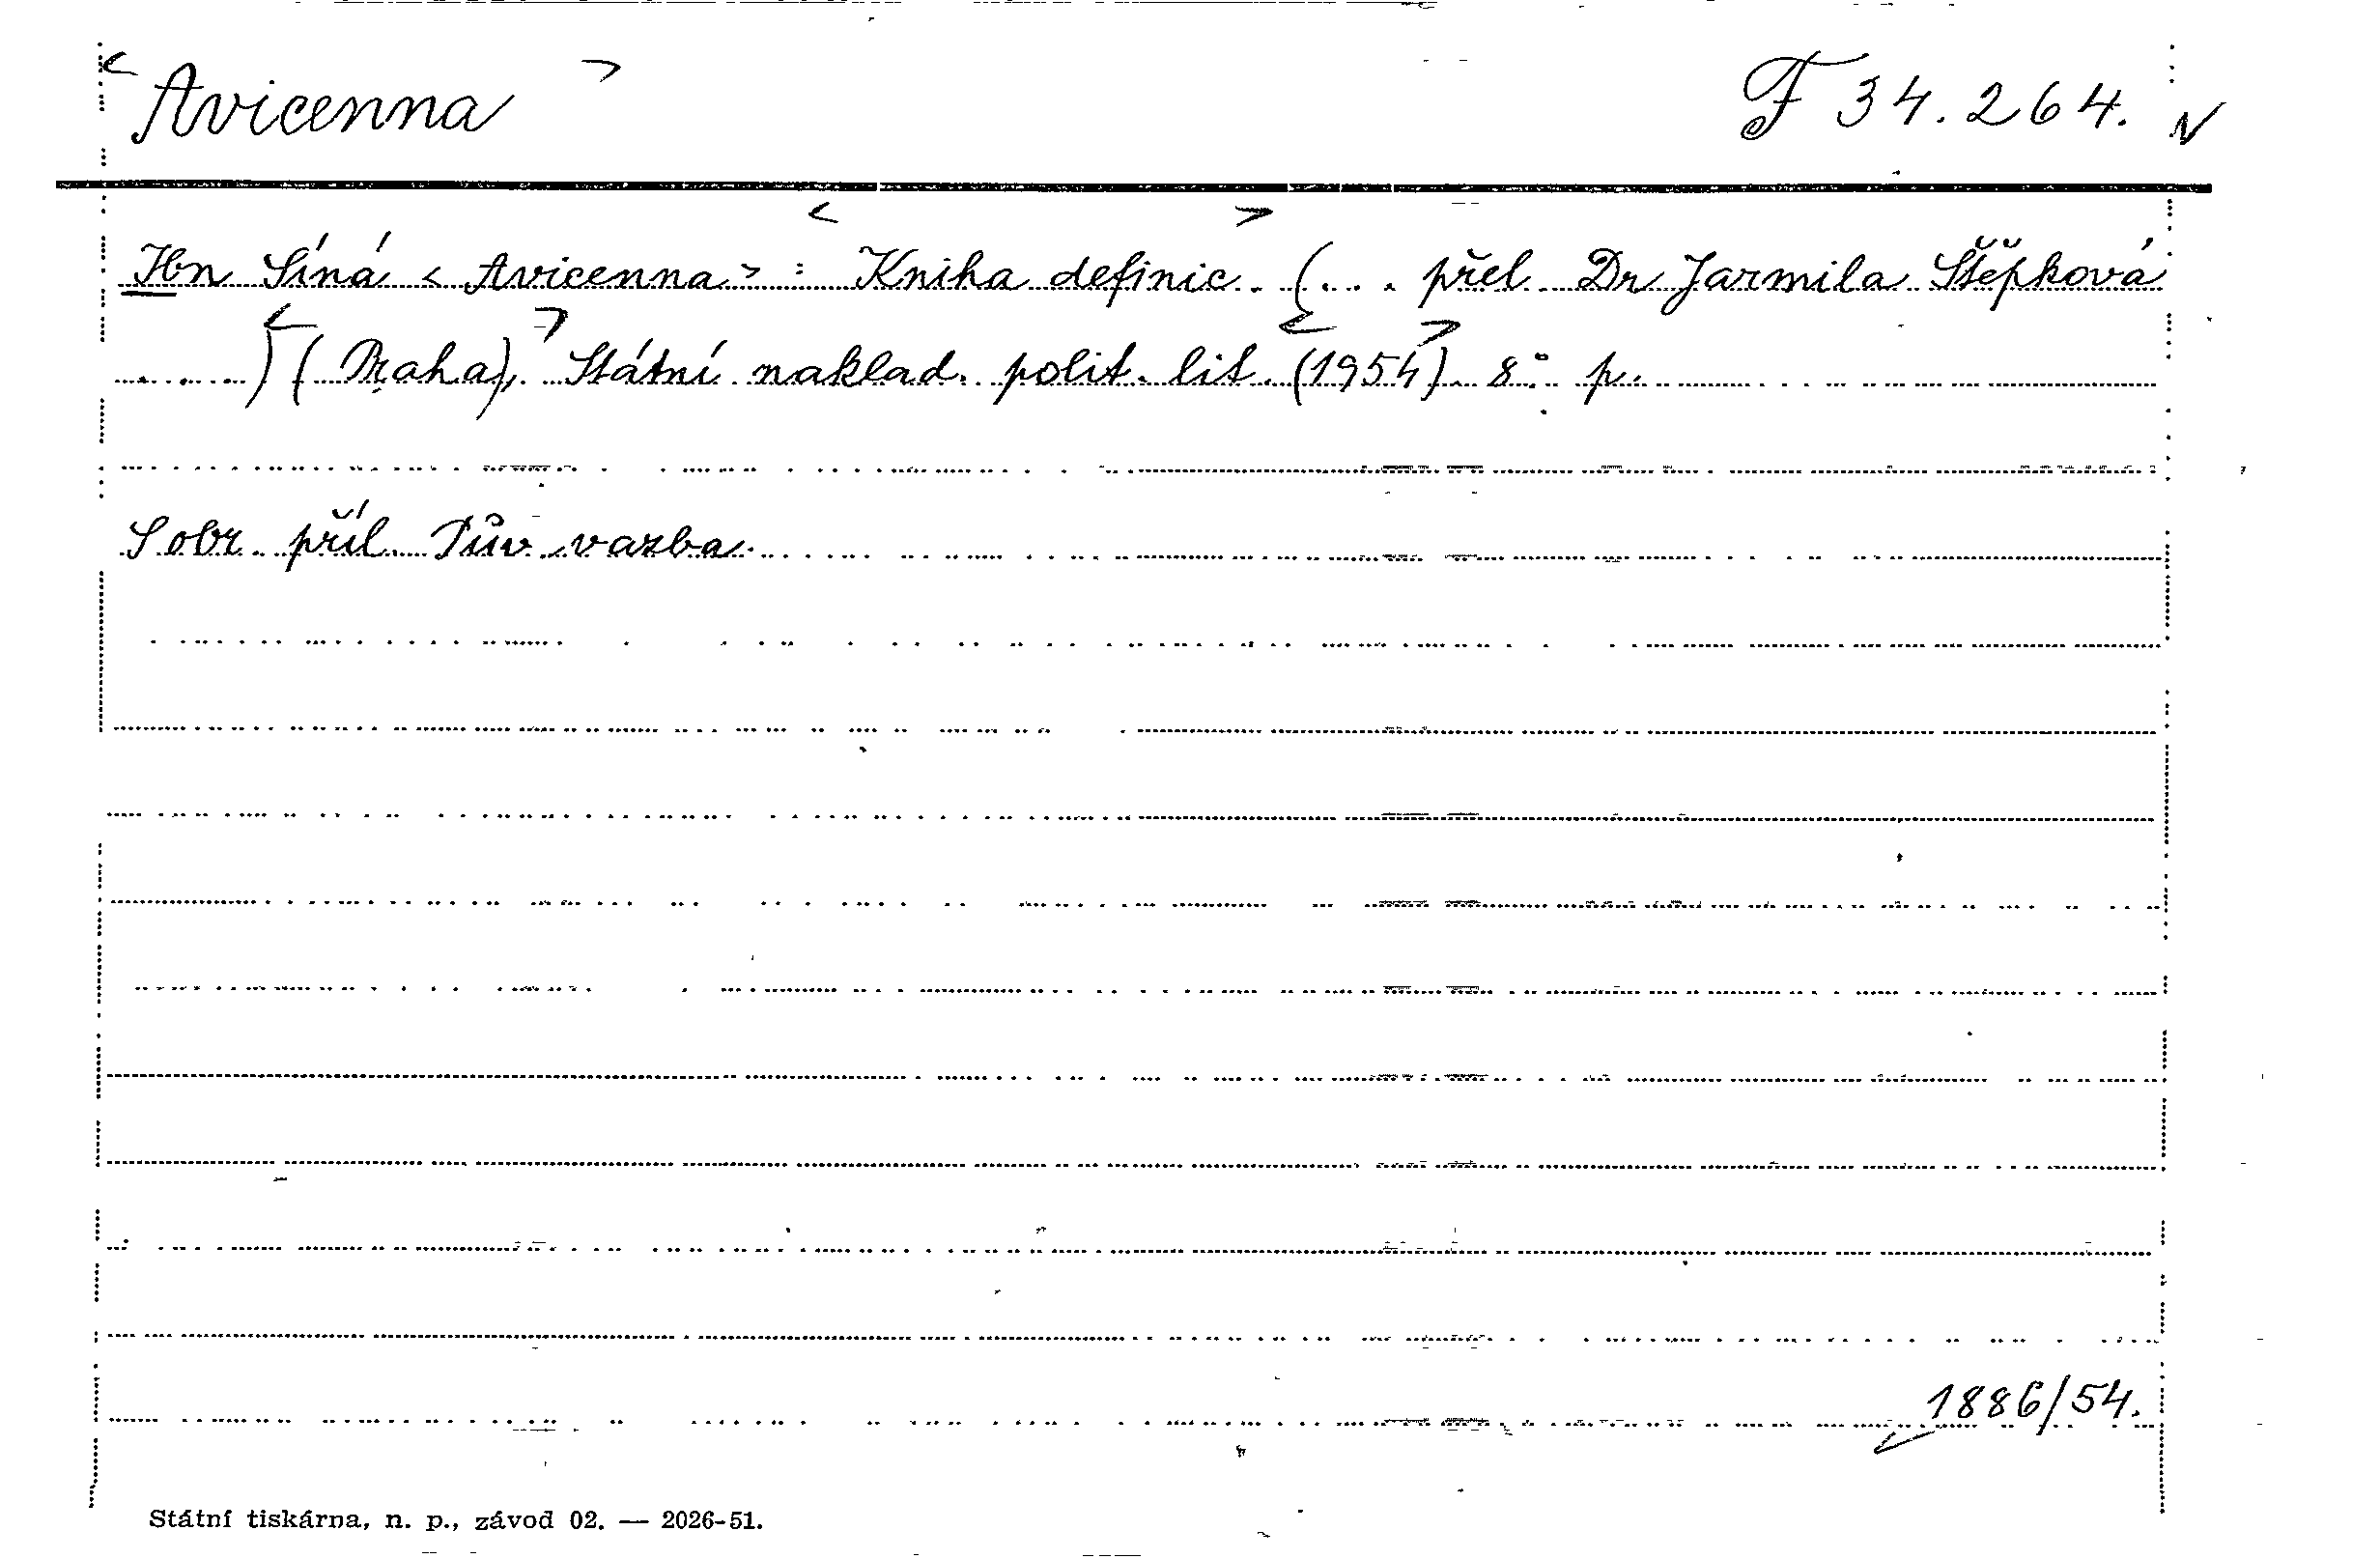 < Avicenna > F 34.264. N
Ibn Síná < Avicenna > : < Kniha definic. > (... přel. Dr Jarmila Štěpková
...) < (Praha), > Státní naklad. polit. lit. < (1954). > 8.° p.
S obr. příl. Pův. vazba.
1886/54.
Státní tiskárna, n. p., závod 02. — 2026-51.